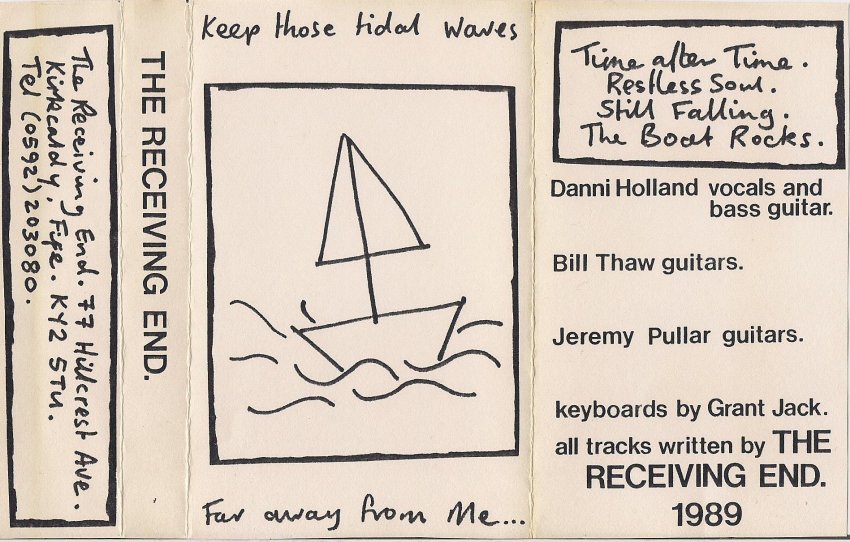 The Receiving End. 77 Hillcrest Ave.
Kirkcaldy. Fife. KY2 5TU.
Tel (0592) 203080.
THE RECEIVING END.
Keep those tidal waves
Far away from Me...
Time after Time.
Restless Soul.
Still Falling.
The Boat Rocks.
Danni Holland vocals and
bass guitar.
Bill Thaw guitars.
Jeremy Pullar guitars.
keyboards by Grant Jack.
all tracks written by THE
RECEIVING END.
1989